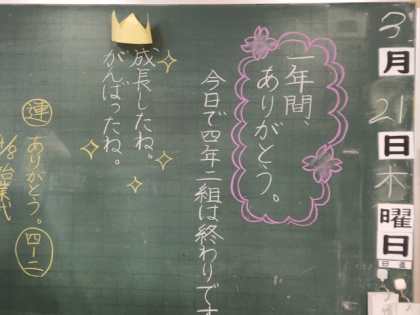 3月21日木曜日
日直
一年間、
ありがとう。
今日で四年二組は終わりです
成長したね。
がんばったね。
連 ありがとう。四一二
4/8 始業式